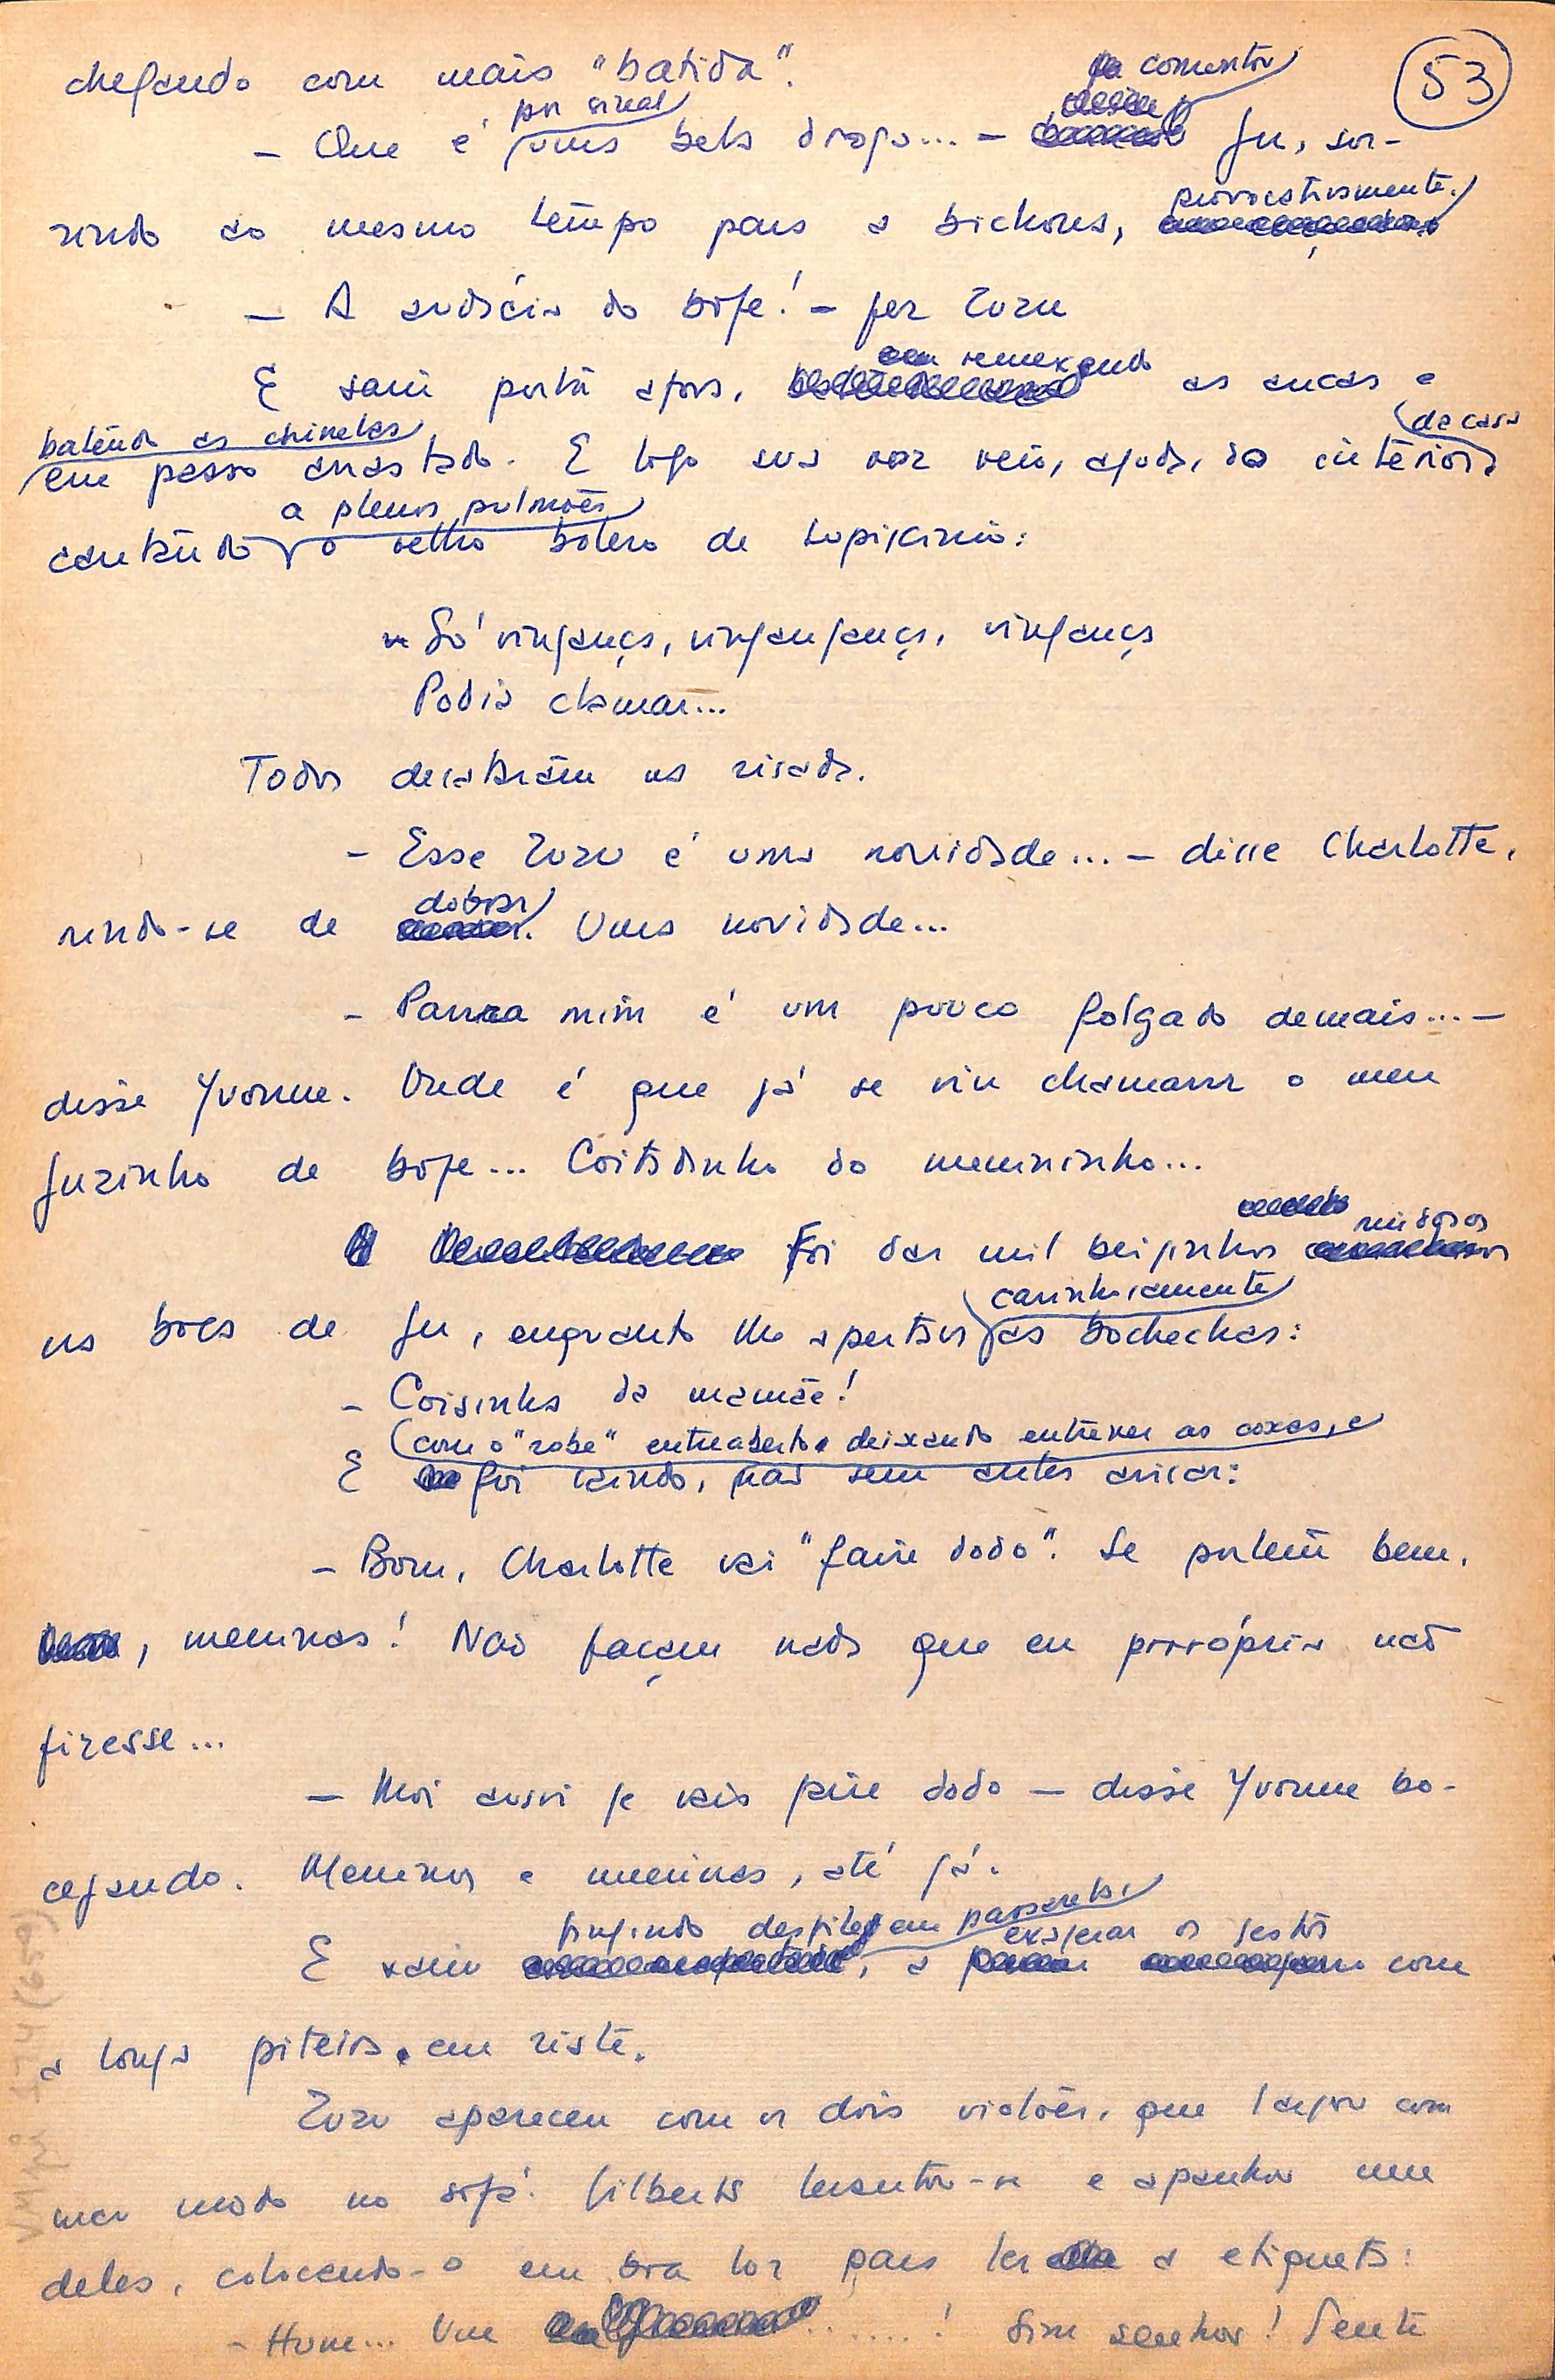 53
chegando com mais "batida".
– Que é por sinal uma bela droga... – comentou Ju, sor-
rindo ao mesmo tempo para a bichona, provocativamente.
– A audácia do bofe! – fez Zuzu
E saiu porta afora, remexendo as ancas e
batendo as chinelas
em passo arrastado. E logo sua voz veio, aguda, do interior da casa
cantando a plenos pulmões o velho bolero de Lupiscinio:
"Só vingança, vingangança, vingança
Podia clamar...
Todos desataram na risada.
– Esse Zuzu é uma novidade... – disse Charlotte,
rindo-se de dobrar. Uma novidade...
– Parra mim é um pouco folgado demais... –
disse Yvonne. Onde é que já se viu chamarr o meu
Juzinho de bofe... Coitadinho do meninninho...
Foi dar mil beijinhos miúdos
na boca de Ju, enquanto lhe apertava carinhosamente as bochechas:
– Coisinha da mamãe!
E com o "robe" entreaberto deixando entrever as coxas, e
foi saindo, não sem antes avisar:
– Bom, Charlotte vai "faire dodo". Se portem bem,
, meninas! Não façam nada que eu prrópria não
fizesse...
– Moi aussi je vais faire dodo – disse Yvonne bo-
cejando. Meninos e meninas, até já.
E saiu fingindo desfilar em passarela, a exagerar os gestos com
a longa piteira em riste.
Zuzu apareceu com os dois violões, que largou com
mau modo no sofá. Gilberto levantou-se e apanhou um
deles, colocando-o em boa luz para ler a etiqueta:
– Hum... Um ......! Sim senhor! Gente